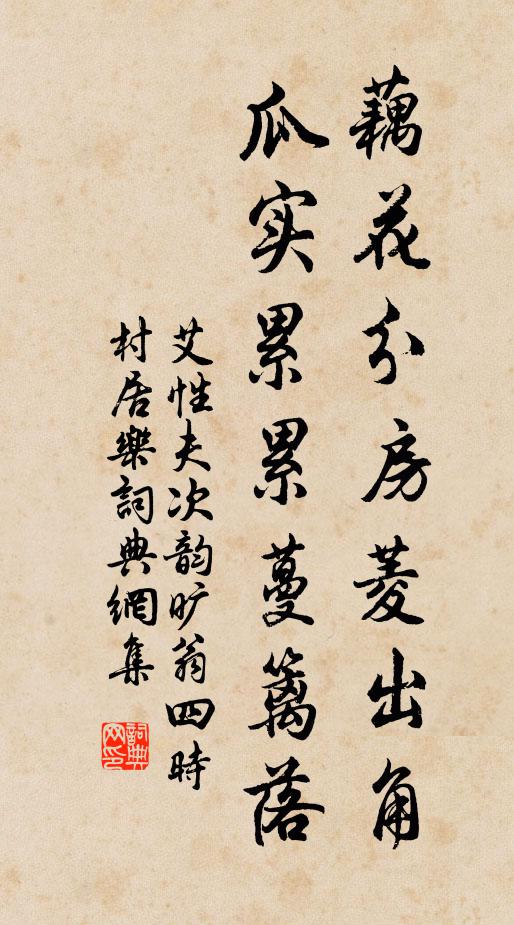 藕花分房菱出角
瓜实累累蔓篱落
艾性夫次韵旷翁四時
村居樂詞典網集
詞典网印